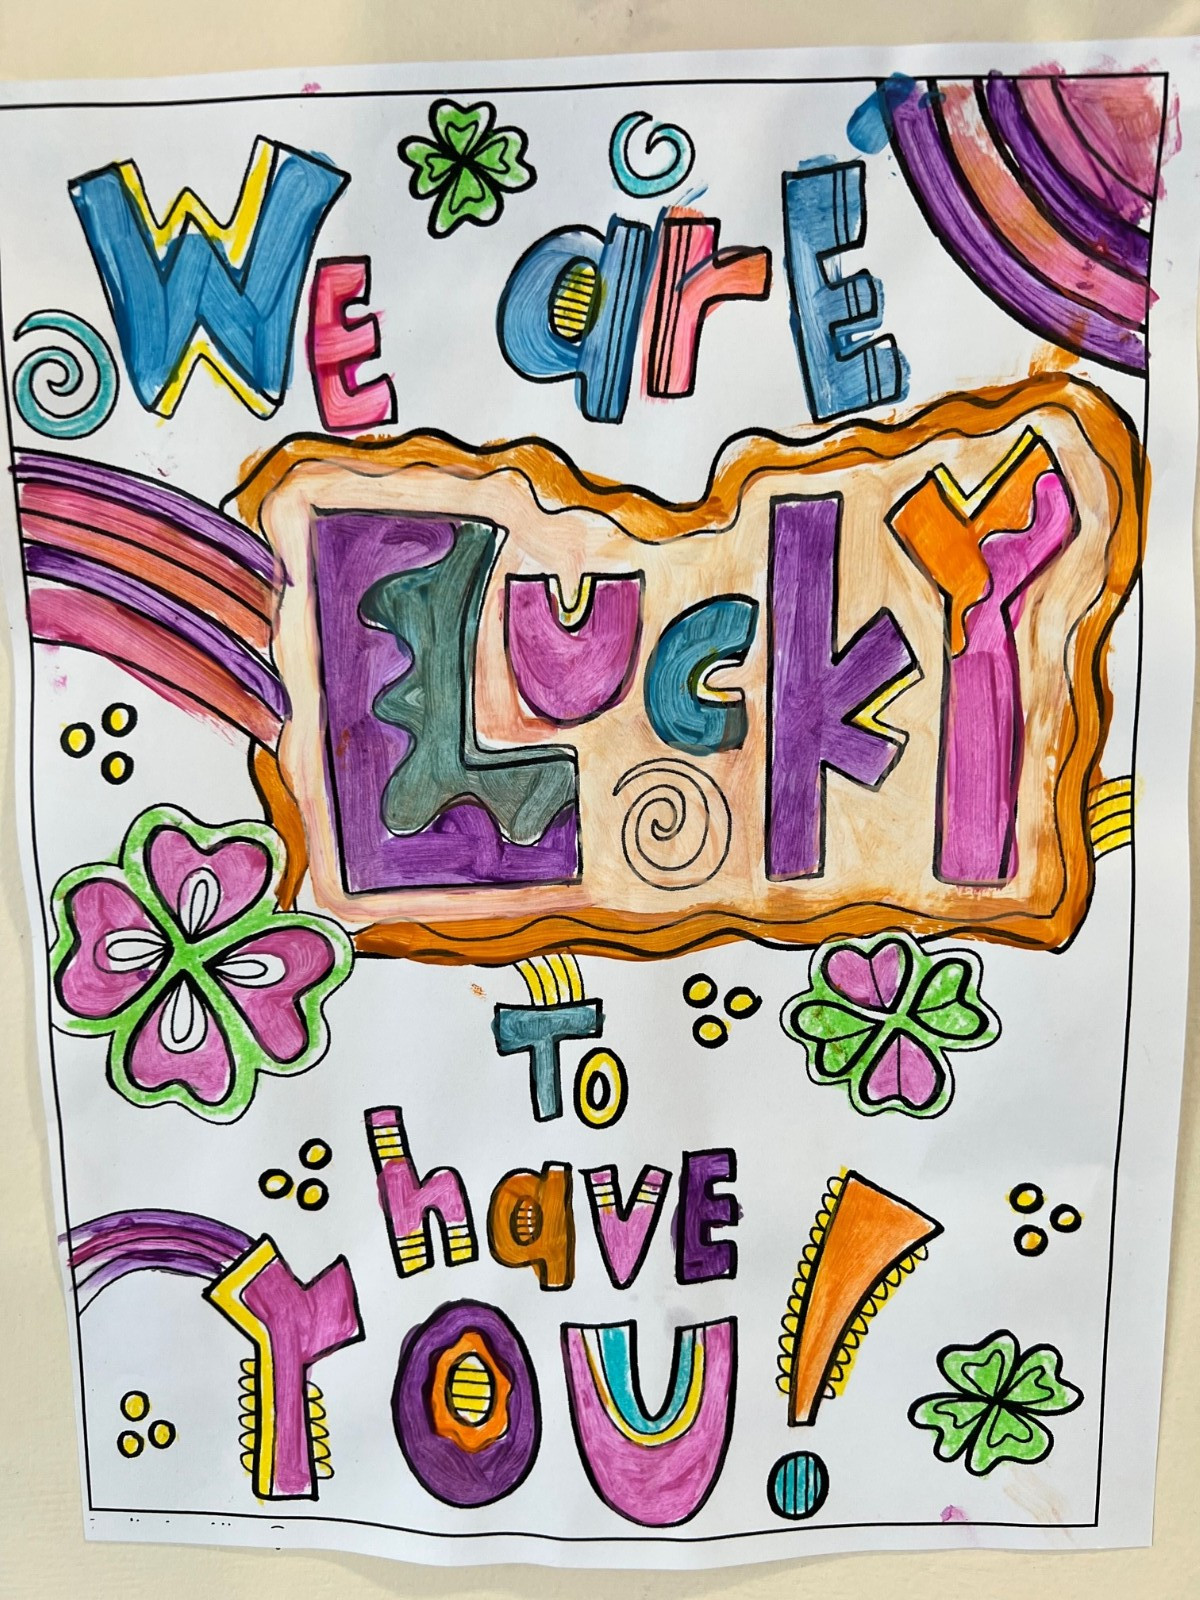 WE arE
LucKY
To
haVE
YOU!